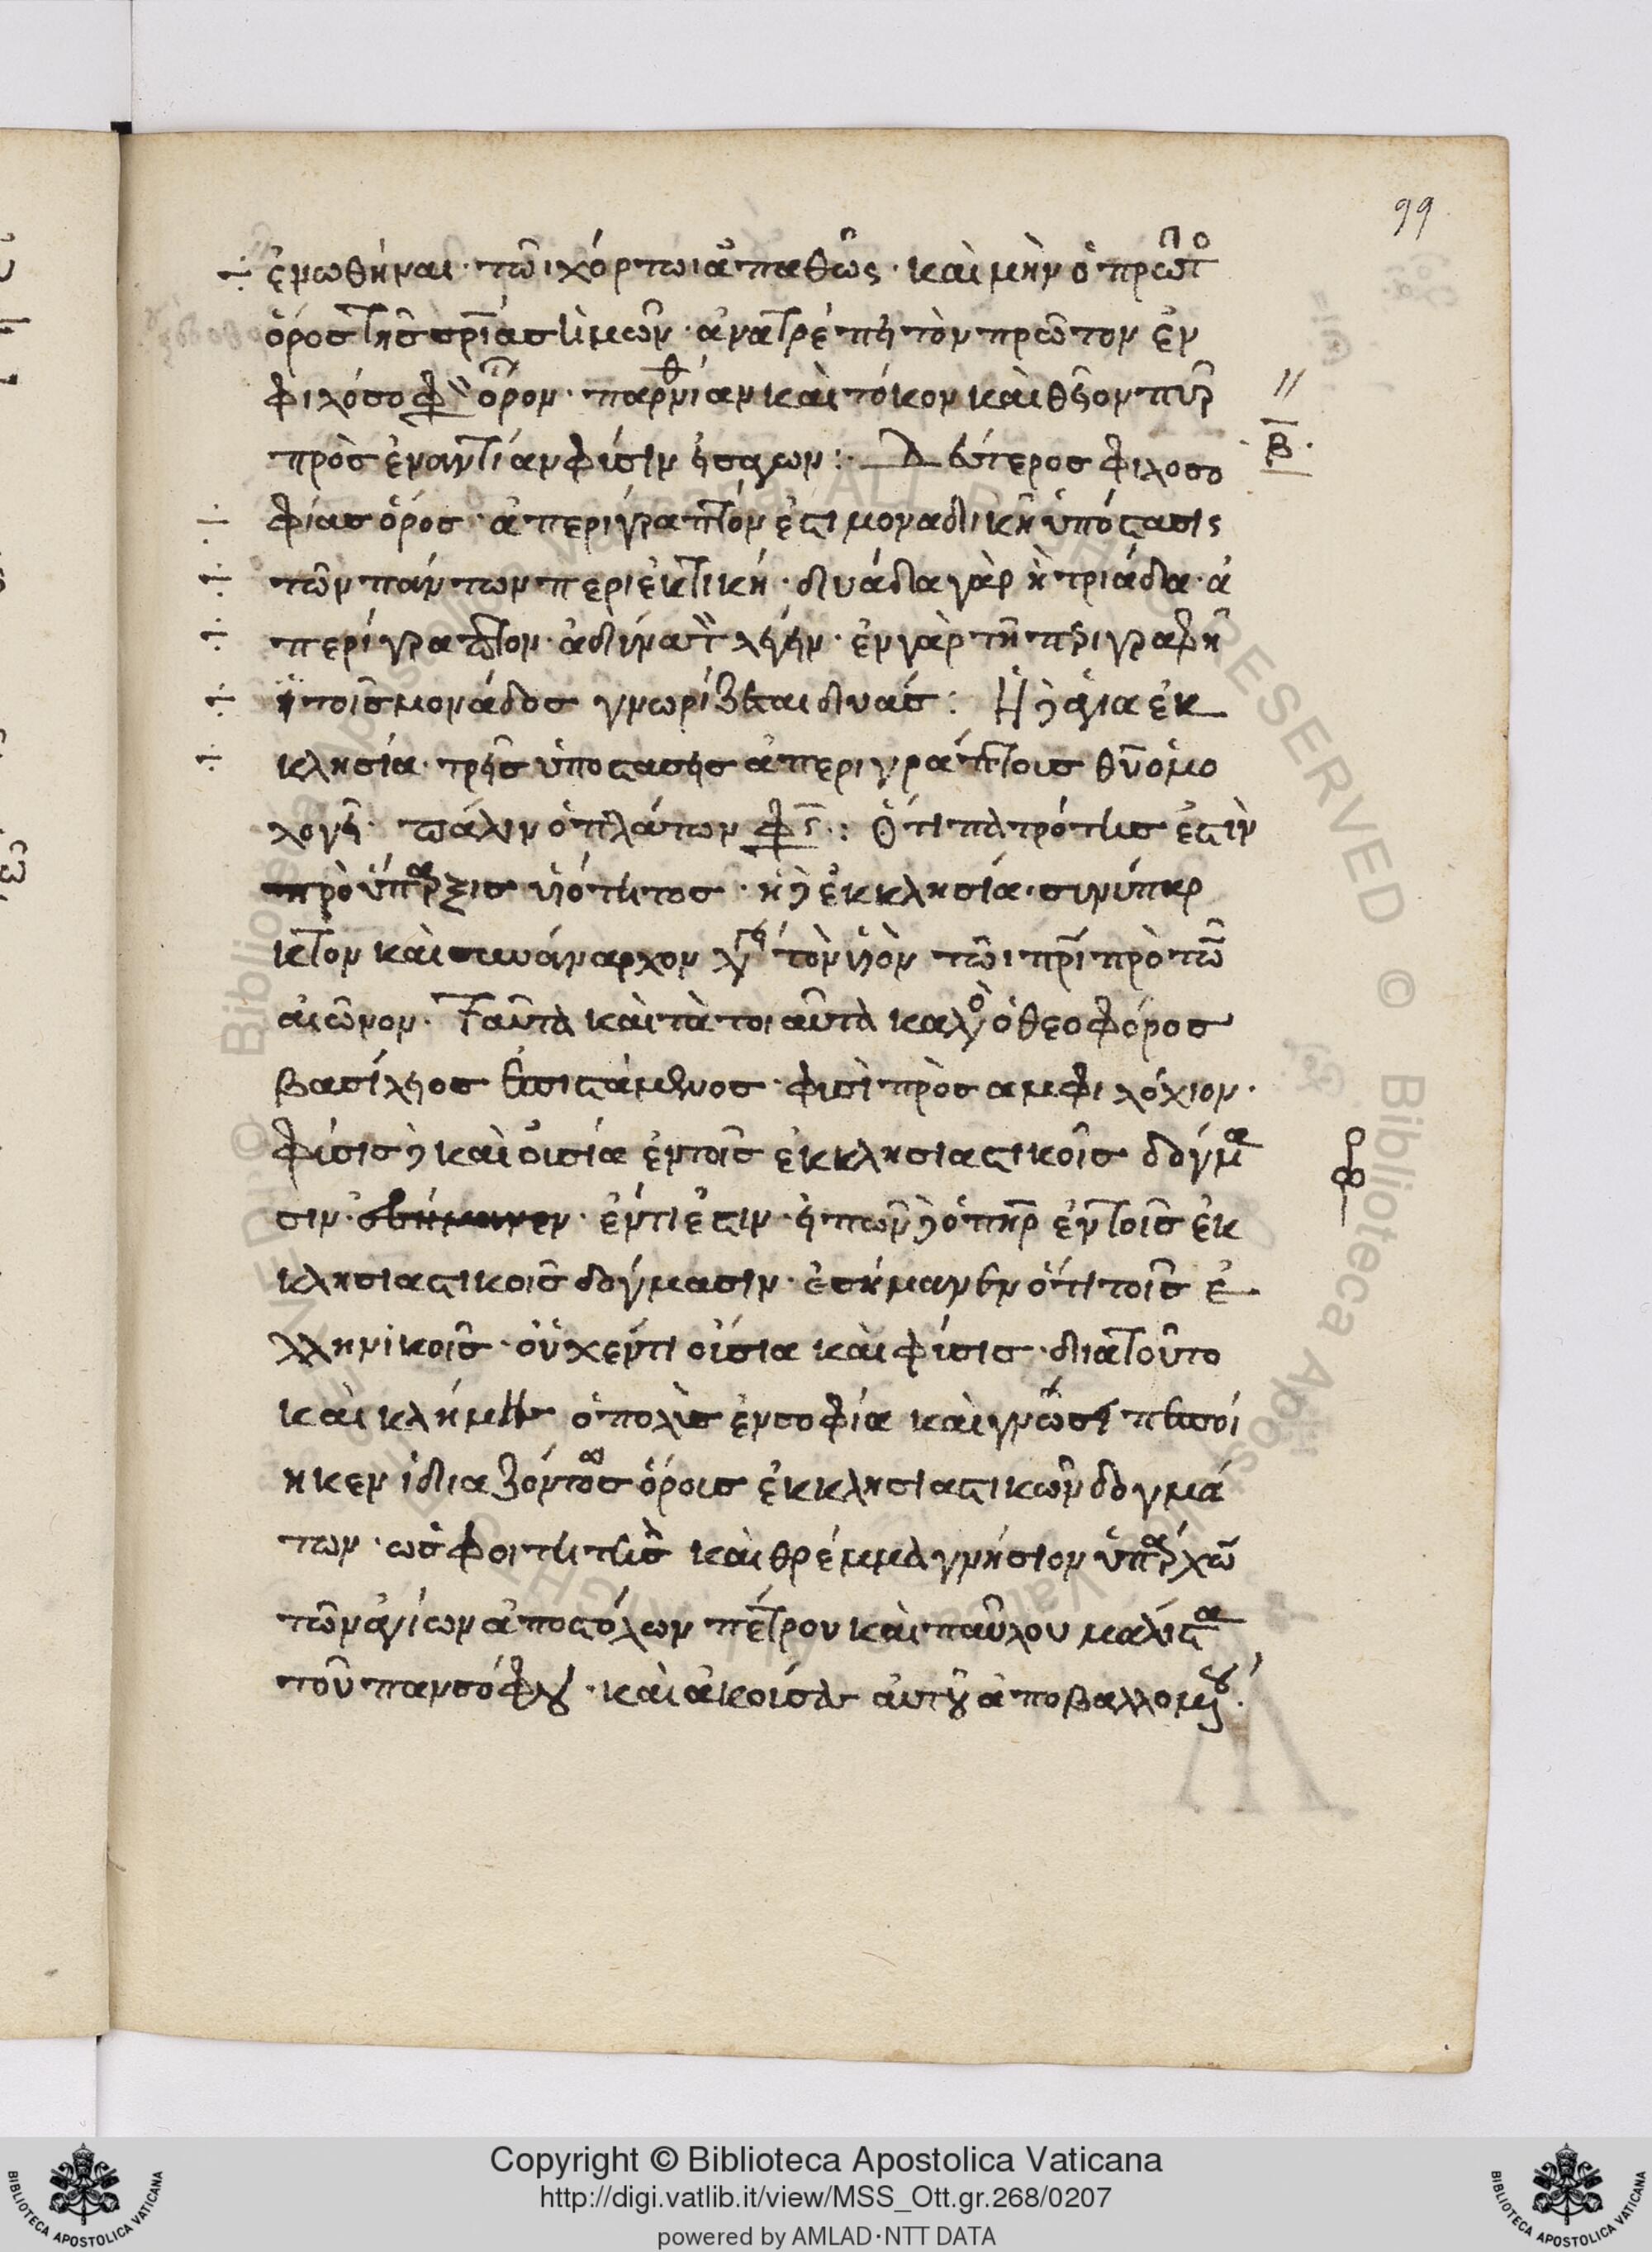 99
ἑνωθῆναι· τῶι χόρτωι ἀπαθῶς· καὶ μὴν ὁ πρῶτο
ὅρος τῆς τριάς ἡμῶν· ἀνατρέπει τὸν πρῶτον ἐν
φιλόσοφ ὅρον· παρθνίαν καὶ τόκον καὶ θεον πῦρ
πρὸς ἐναντίαν φύσιν εἰσάγων: Δεύτερος φιλοσο
Β
φίας ὅρος· ἀπερίγραπτόν ἐστι μοναδικὴ ὑπόστασις
τῶν πάντων περιεκτική· δυάδα γὰρ ἢ τριάδα· ἀ
περίγραπτον· ἀδύνατ λέγειν· ἐν γὰρ τῆ περιγραφῆ
τοῖς μονάδος γνωρίζεται δυάς: Ἡ δὲ ἁγία ἐκ
κλησία· τρεῖς ὑποστάσεις ἀπεριγράπτους θυ ὁμο
λογεῖ· πάλιν ὁ πλάτων φς: Ὅτι πατρότης ἐστὶν
προὕπαρξις υἱότητος· ἡ δὲ ἐκκλησία· συνύπαρ
κτον καὶ συνάναρχον λέγει τὸν υἱὸν τῶι πρὶ πρὸ τῶ
αἰῶνον. Ταῦτα καὶ τὰ τοιαῦτα καλῶ ὁ θεοφόρος
βασίλειος ἐπιστάμενος· φησὶ πρὸς αμφιλόχιον·
φύσις δὲ καὶ οὐσία ἐν τοῖς ἐκκλησιαστικοῖς δόγμα
σιν· ἐσήμανεν· ἕν τι ἐστιν· εἰπὼν δὲ ὁ πηρ ἐν τοῖς ἐκ
κλησιαστικοῖς δόγμασιν· ἐσήμανεν ὅτι τοῖς ἑ
λληνικοῖς· οὐχ ἕν τι οὐσία καὶ φύσις· διατοῦτο
καὶ κλήμης ὁ πολὺς ἐν σοφία καὶ γνώσει πεποί
ηκεν ἰδιαζόντως ὅρους ἐκκλησιαστικῶν δογμά
των· ὡς φοιτητὴς καὶ θρέμμα γνήσιον ὑπάρχω
τῶν ἁγίων ἀποστόλων πέτρου καὶ παύλου μάλιστα
τοῦ πανσόφου· καὶ ἀκούσας αὐτοῦ ἀποβαλλομένου·
Copyright © Biblioteca Apostolica Vaticana
http://digi.vatlib.it/view/MSS_Ott.gr.268/0207
powered by AMLAD·NTT DATA
BIBLIOTECA APOSTOLICA VATICANA
BIBLIOTECA APOSTOLICA VATICANA